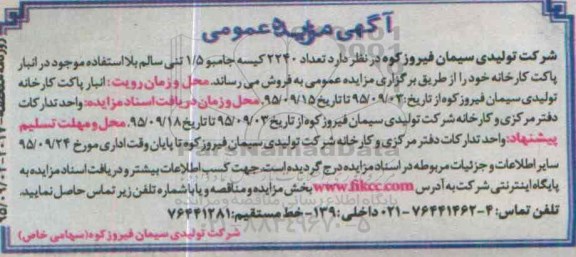 آگهی مزایده عمومی
شرکت تولیدی سیمان فیروزکوه در نظر دارد تعداد ۲۲۴۰ کیسه جامبو ۱/۵ تنی سالم بلااستفاده موجود در انبار
پاکت کارخانه خود را از طریق برگزاری مزایده عمومی به فروش می رساند. محل و زمان رویت: انبار پاکت کارخانه
تولیدی سیمان فیروزکوه از تاریخ: ۹۵/۰۹/۰۳ تا تاریخ ۹۵/۰۹/۱۵. محل وزمان دریافت اسناد مزایده: واحد تدارکات
دفتر مرکزی و کارخانه شرکت تولیدی سیمان فیروزکوه از تاریخ ۹۵/۰۹/۰۳ تا تاریخ ۹۵/۰۹/۱۸. محل و مهلت تسلیم
پیشنهاد: واحد تدارکات دفتر مرکزی و کارخانه شرکت تولیدی سیمان فیروزکوه تا پایان وقت اداری مورخ ۹۵/۰۹/۲۴
سایر اطلاعات و جزئیات مربوطه در اسناد مزایده درج گردیده است. جهت کسب اطلاعات بیشتر و دریافت اسناد مزایده به
پایگاه اینترنتی شرکت به آدرس www.fikcc.com بخش مزایده و مناقصه و یا با شماره تلفن زیر تماس حاصل نمایید.
تلفن تماس: ۴-۷۶۴۴۱۴۶۲-۰۲۱ داخلی: ۱۳۹- خط مستقیم: ۷۶۴۴۱۲۸۱
شرکت تولیدی سیمان فیروزکوه (سهامی خاص)
ParsNamadData
پایگاه اطلاع رسانی مناقصه و مزایده
۰۲۱-۸۸۳۴۹۶۷۰-۵